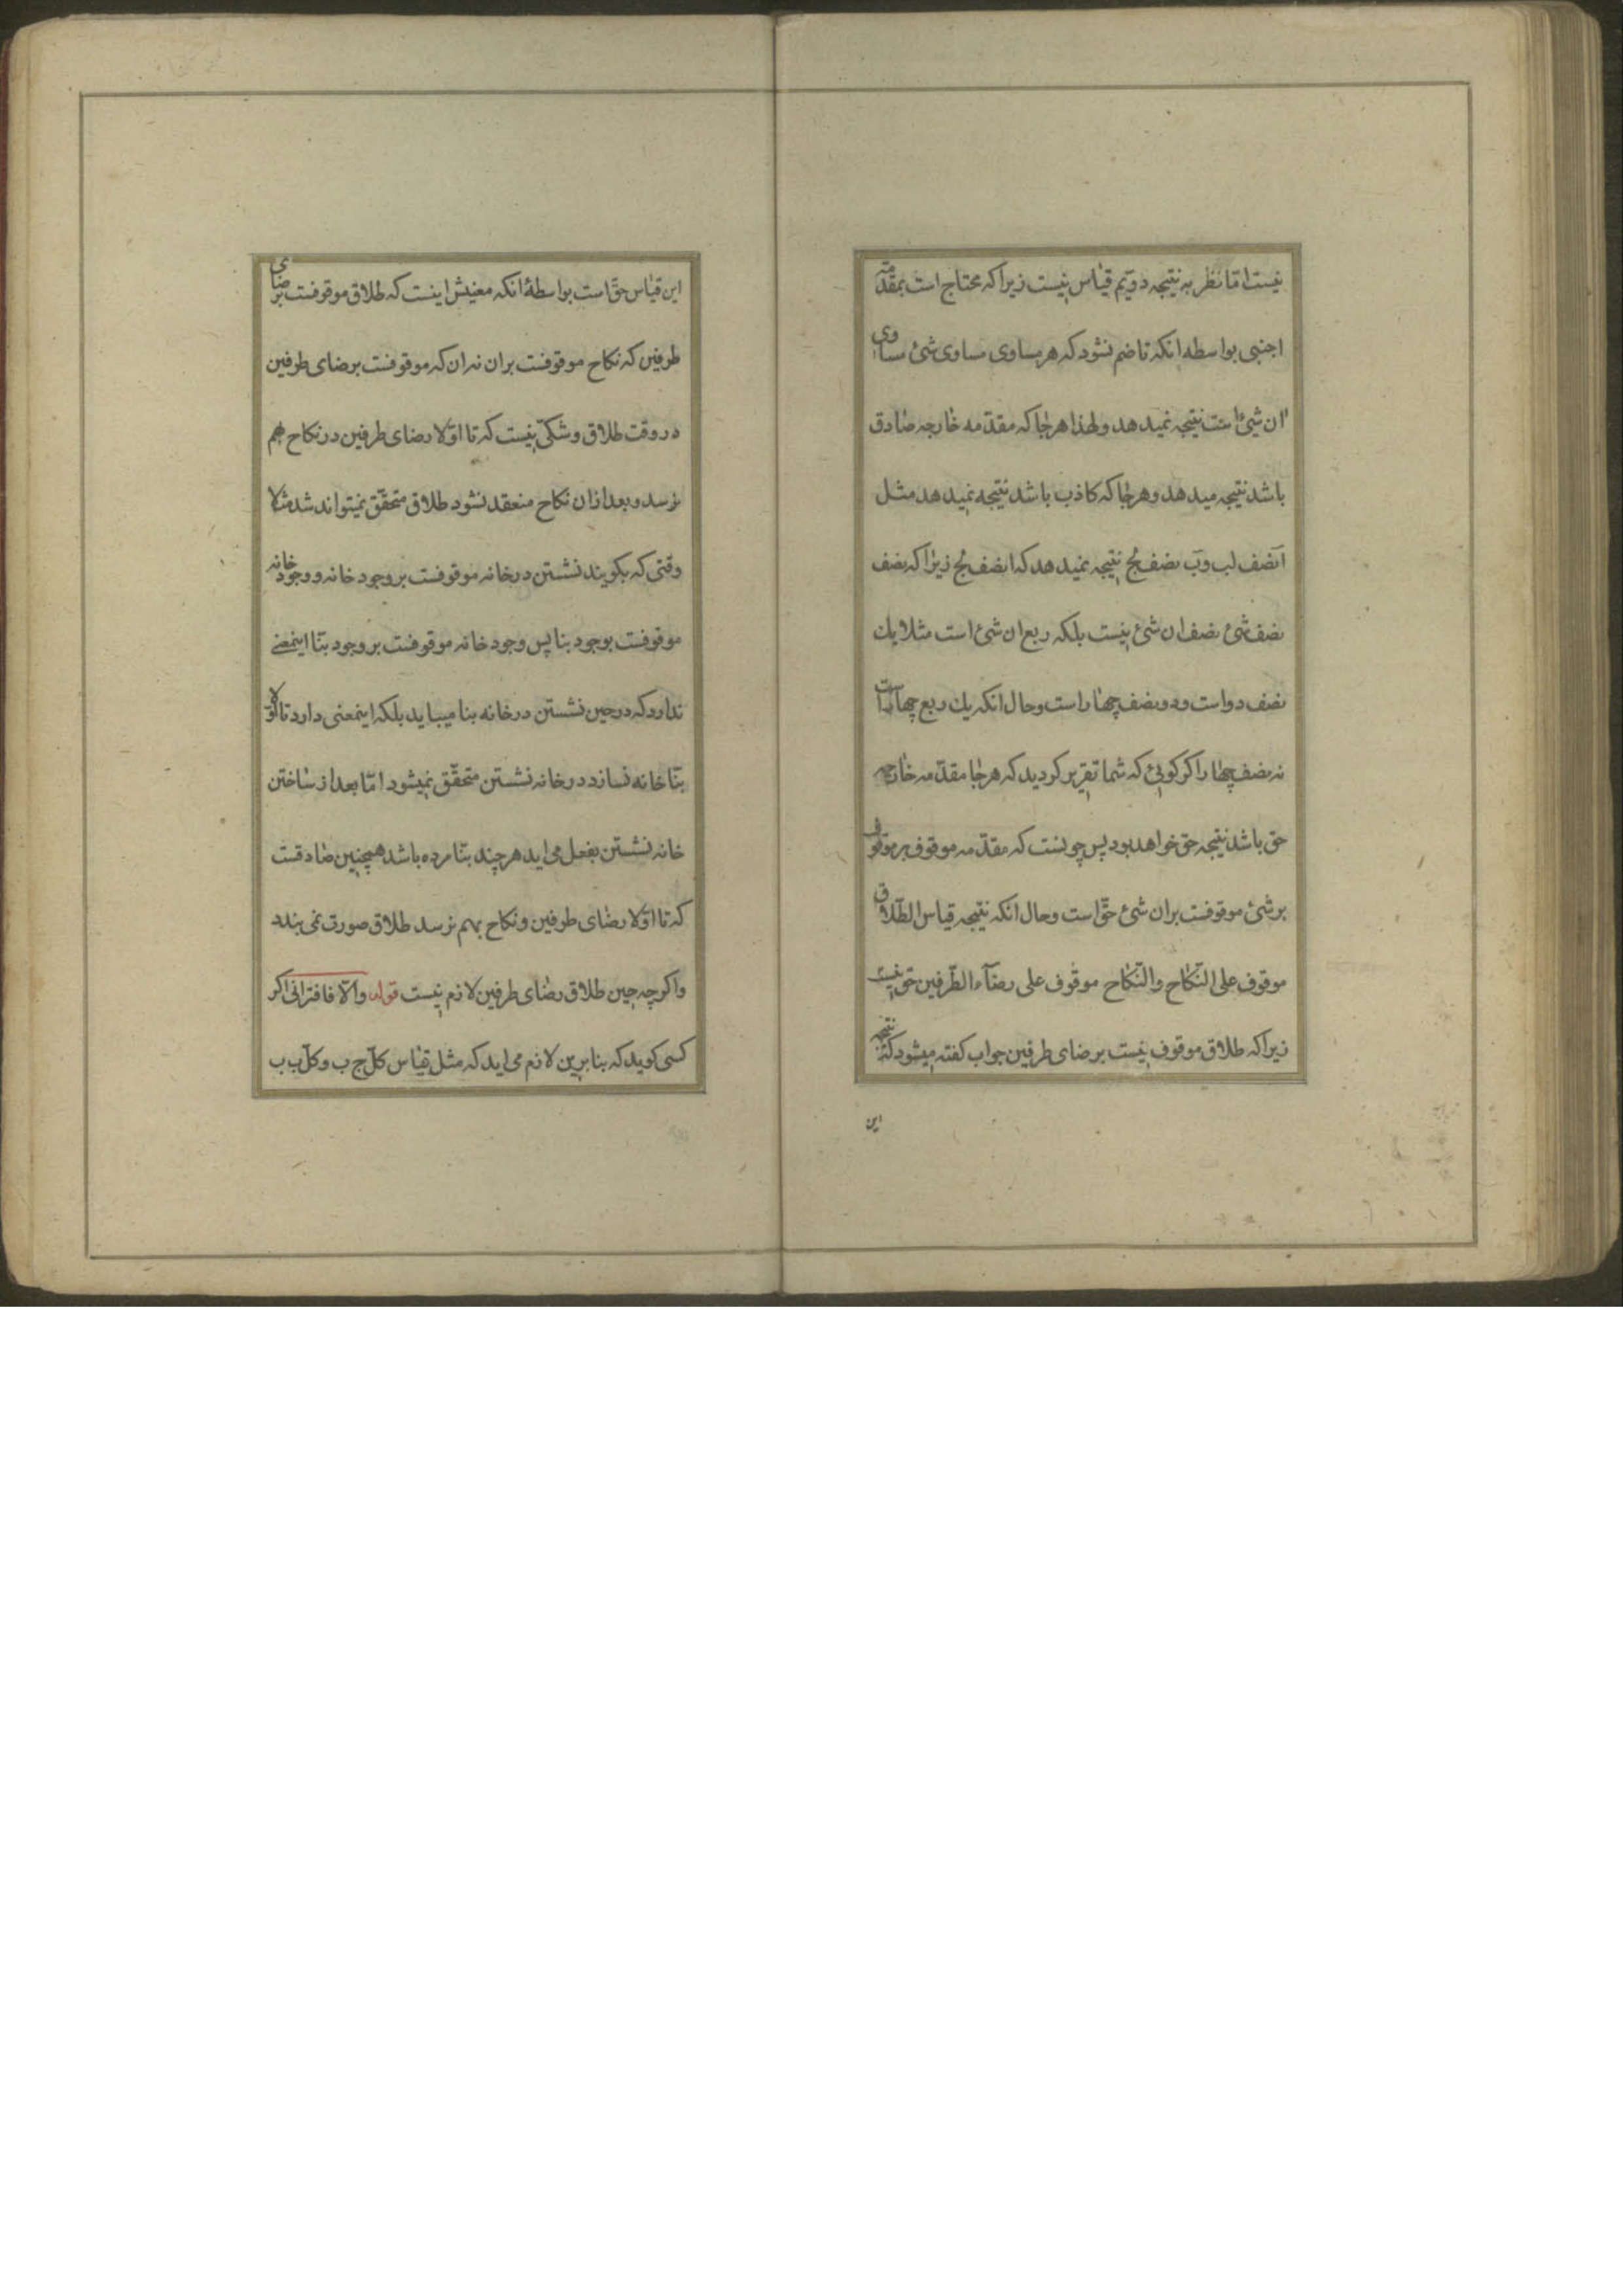 نیست امّا نظر به نتیجه دویّم قیاس نیست زیرا که محتاج است بمقدّمه
اجنبی بواسطه انکه تا ضم نشود که هر مساوی مساوی شئ مساوی
ان شئ است نتیجه نمیدهد ولهذا هرجا که مقدّمه خارجه صادق
باشد نتیجه میدهد وهرجا که کاذب باشد نتیجه نمیدهد مثل
آ نصف لب وب نصف لج نتیجه نمیدهد که ا نصف لج زیرا که نصف
نصف شئ نصف ان شئ نیست بلکه ربع ان شئ است مثلا یك
نصف دو است ودو نصف چهار است وحال انکه یك ربع چهار است
نه نصف چهار اکر کوئی که شما تقریر کردید که هرجا مقدّمه خارجه
حق باشد نتیجه حق خواهد بود پس چونست که مقدّمه موقوف بر موقوف
بر شئ موقوفست بران شئ حقّ است وحال انکه نتیجه قیاس الطّلاق
موقوف علی النّکاح والنّکاح موقوف علی رضآء الطّرفین حق نیست
زیرا که طلاق موقوف نیست برضای طرفین جواب کفته میشود که نتیجه
این
این قیاس حقّ است بواسطهٔ انکه معنیش اینست که طلاق موقوفست بر رضای
طرفین که نکاح موقوفست بران نه ان که موقوفست برضای طرفین
در وقت طلاق وشکّی نیست که تا اوّلا رضای طرفین در نکاح بهم
نرسد وبعد ازان نکاح منعقد نشود طلاق متحقّق نمیتواند شد مثلا
وقتی که بکویند نشستن در خانه موقوفست بر وجود خانه ووجود خانه
موقوفست بوجود بنا پس وجود خانه موقوفست بر وجود بنّا اینمعنے
ندارد که در حین نشستن در خانه بنا میباید بلکه اینمعنی دارد تا اوّلا
بنّا خانه نسازد در خانه نشستن متحقّق نمیشود امّا بعد از ساختن
خانه نشستن بفعل می اید هرچند بنّا مرده باشد همچنین صادقست
که تا اوّلا رضای طرفین ونکاح بهم نرسد طلاق صورت نمی بندد
واکرچه حین طلاق رضای طرفین لازم نیست قوله والّا فاقترانی اکر
کسی کوید که بنا برین لازم می اید که مثل قیاس کلّ ج ب وکلّ ب ب